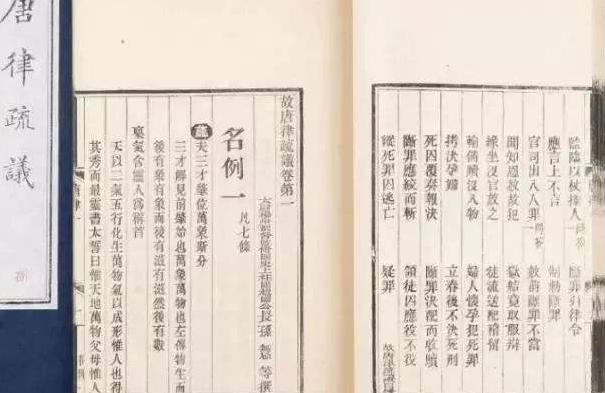 唐律疏議
監臨以杖捶人 問答 斷罪引律令
應言上不言 制勅斷罪
官司出入人罪 問答 赦前斷罪不當
聞知恩赦故犯 獄結竟取服辯
緣坐沒官放之 徒流送配稽留
輸備贖沒入物 婦人懷孕犯死罪
拷決孕婦 立春後不決死刑
死囚覆奏報決 斷罪決配而收贖
斷罪應絞而斬 領徒囚應役不役
縱死罪囚逃亡 疑罪
故唐律疏議目
故唐律疏議卷第一
長孫無忌等撰
名例一 凡七條
夫三才肇位萬象斯分
三才解見前肇始也萬象萬物也左傳物生而
後有象有象而後有滋有滋然後有數
稟氣含靈人爲稱首
天以二氣五行化生萬物氣以成形惟人也得
其秀而最靈書太誓曰惟天地萬物父母惟人